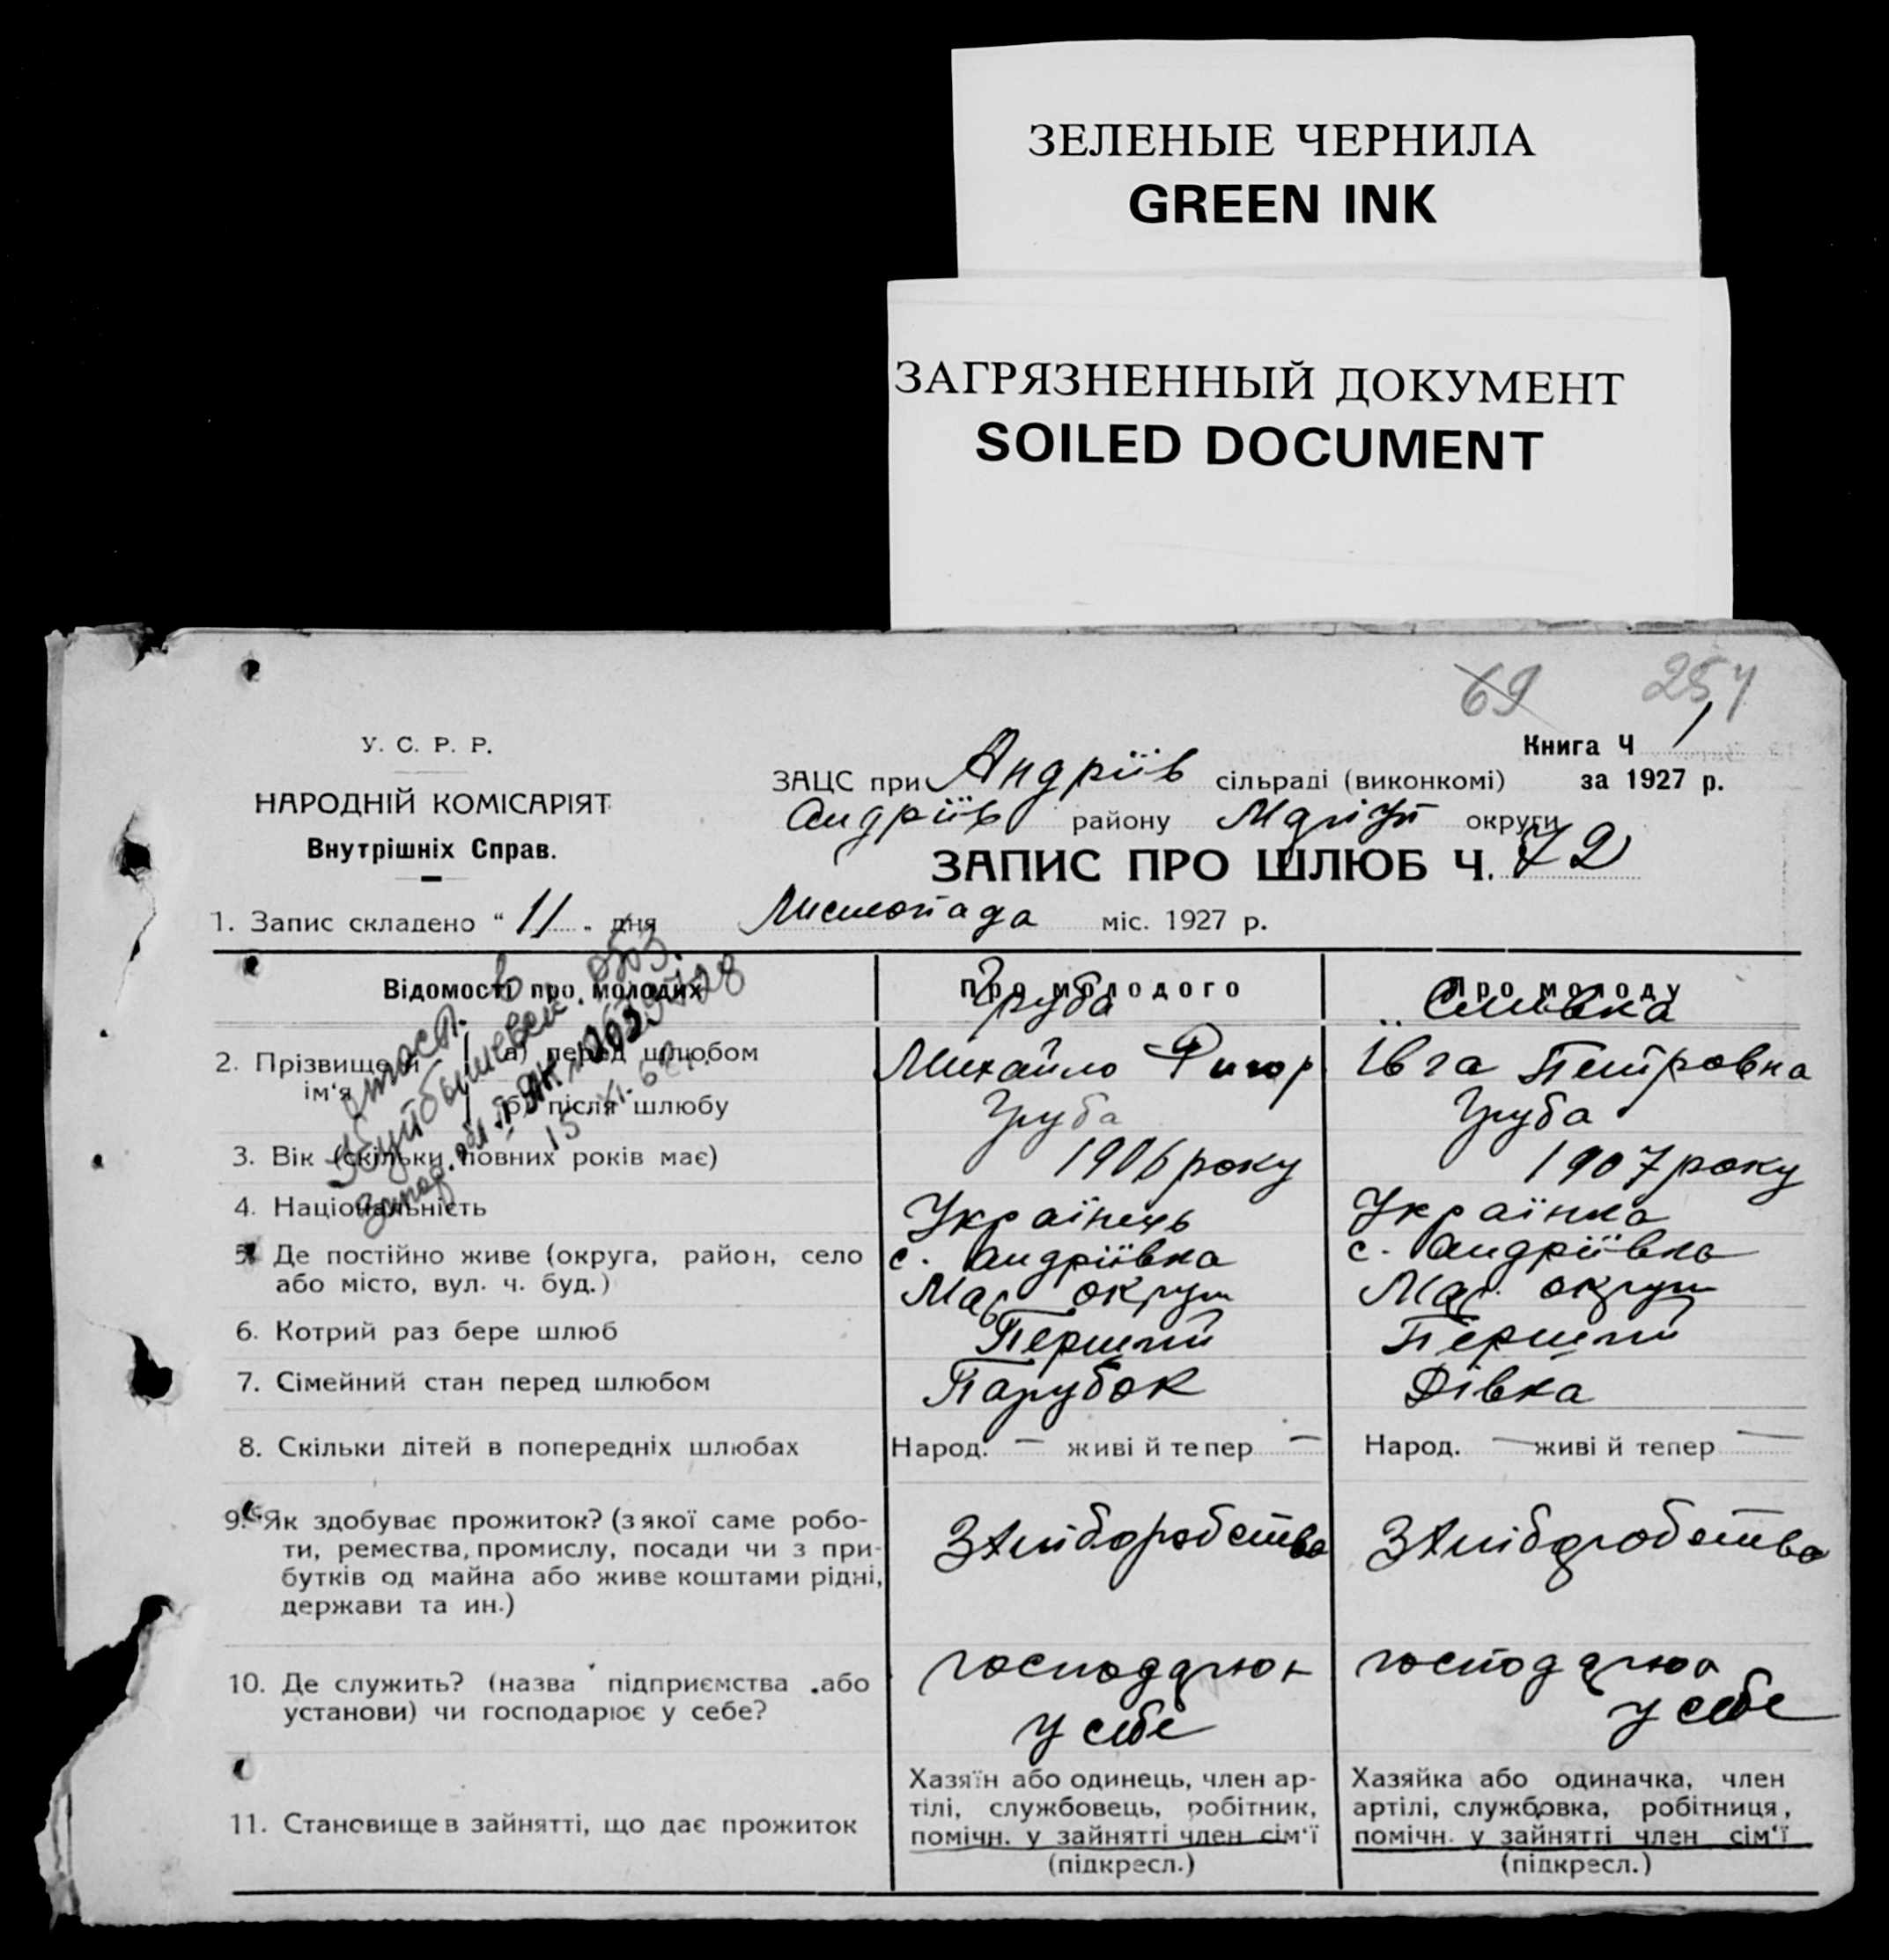 ЗЕЛЕНЫЕ ЧЕРНИЛА
GREEN INK
ЗАГРЯЗНЕННЫЙ ДОКУМЕНТ
SOILED DOCUMENT
69 254
У. С. Р. Р.
НАРОДНІЙ КОМІСАРІЯТ
Внутрішніх Справ.
Книга Ч 1
ЗАЦС при Андріїв сільраді (виконкомі) за 1927 р.
Андріїв району Маріуп округи
ЗАПИС ПРО ШЛЮБ Ч. 72
1. Запис складено “ 11 „ дня Листопада міс. 1927 р.
Відомості про молодих
Про молодого
Про молоду
2. Прізвище й ім‘я
а) перед шлюбом
Груба
Михайло Григор
Сливка
Ївга Петровна
б) після шлюбу
Груба
Груба
3. Вік (скільки повних років має)
1906 року
1907 року
4. Національність
Українець
Українка
5. Де постійно живе (округа, район, село
або місто, вул. ч. буд.)
с. Андріївка
Мар округи
с. Андріївка
Мар. округи
6. Котрий раз бере шлюб
Перший
Перший
7. Сімейний стан перед шлюбом
Парубок
Дівка
8. Скільки дітей в попередніх шлюбах
Народ. — живі й тепер —
Народ. — живі й тепер —
9. Як здобуває прожиток? (з якої саме робо-
ти, ремества, промислу, посади чи з при-
бутків од майна або живе коштами рідні,
держави та ин.)
З хліборобства
З хліборобства
10. Де служить? (назва підприємства або
установи) чи господарює у себе?
господарює
у себе
господарює
у себе
11. Становище в зайнятті, що дає прожиток
Хазяїн або одинець, член ар-
тілі, службовець, робітник,
помічн. у зайнятті член сім‘ї
(підкресл.)
Хазяйка або одиначка, член
артілі, службовка, робітниця,
помічн. у зайнятті член сім‘ї
(підкресл.)